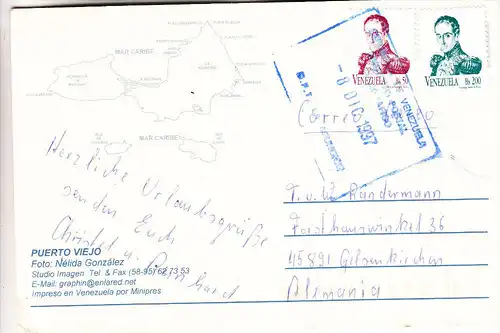 MAR CARIBE
MAR CARIBE
VENEZUELA Bs 50
VENEZUELA Bs 200
VENEZUELA
8 DIC 1997
Correo
Herzliche Urlaubsgrüße
senden Euch
Christel u. Reinhard
PUERTO VIEJO
Foto: Nélida González
Studio Imagen Tel. & Fax (58-95) 62 73 53
E-Mail: graphin@enlared.net
Impreso en Venezuela por Minipres
F. u. U. Handermann
Forsthauswinkel 36
45891 Gelsenkirchen
Alemania